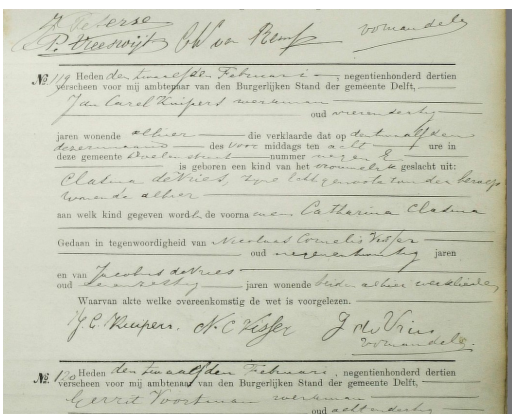 P. Vreeswijk
№ 119 Heden den twaalfden Februari, negentienhonderd dertien
verscheen voor mij ambtenaar van den Burgerlijken Stand der gemeente Delft,
Jan Carel Kuipers werkman
oud
jaren wonende alhier die verklaarde dat op den twaalfden
dezer maand des voor middags ten acht ure in
deze gemeente nummer negen
is geboren een kind van het vrouwelijk geslacht uit:
Clasina de Vries, zijne echtgenoote van der beroep
wonende alhier
aan welk kind gegeven wordt de voorna men Catharina Clasina
Gedaan in tegenwoordigheid van Nicolaas Cornelis Visser
oud jaren
en van Jacobus de Vries
oud jaren wonende beiden alhier
Waarvan akte welke overeenkomstig de wet is voorgelezen.
J. C. Kuipers. N. C. Visser J de Vries
№ 120 Heden den twaalfden Februari, negentienhonderd dertien
verscheen voor mij ambtenaar van den Burgerlijken Stand der gemeente Delft,
Gerrit werkman
oud